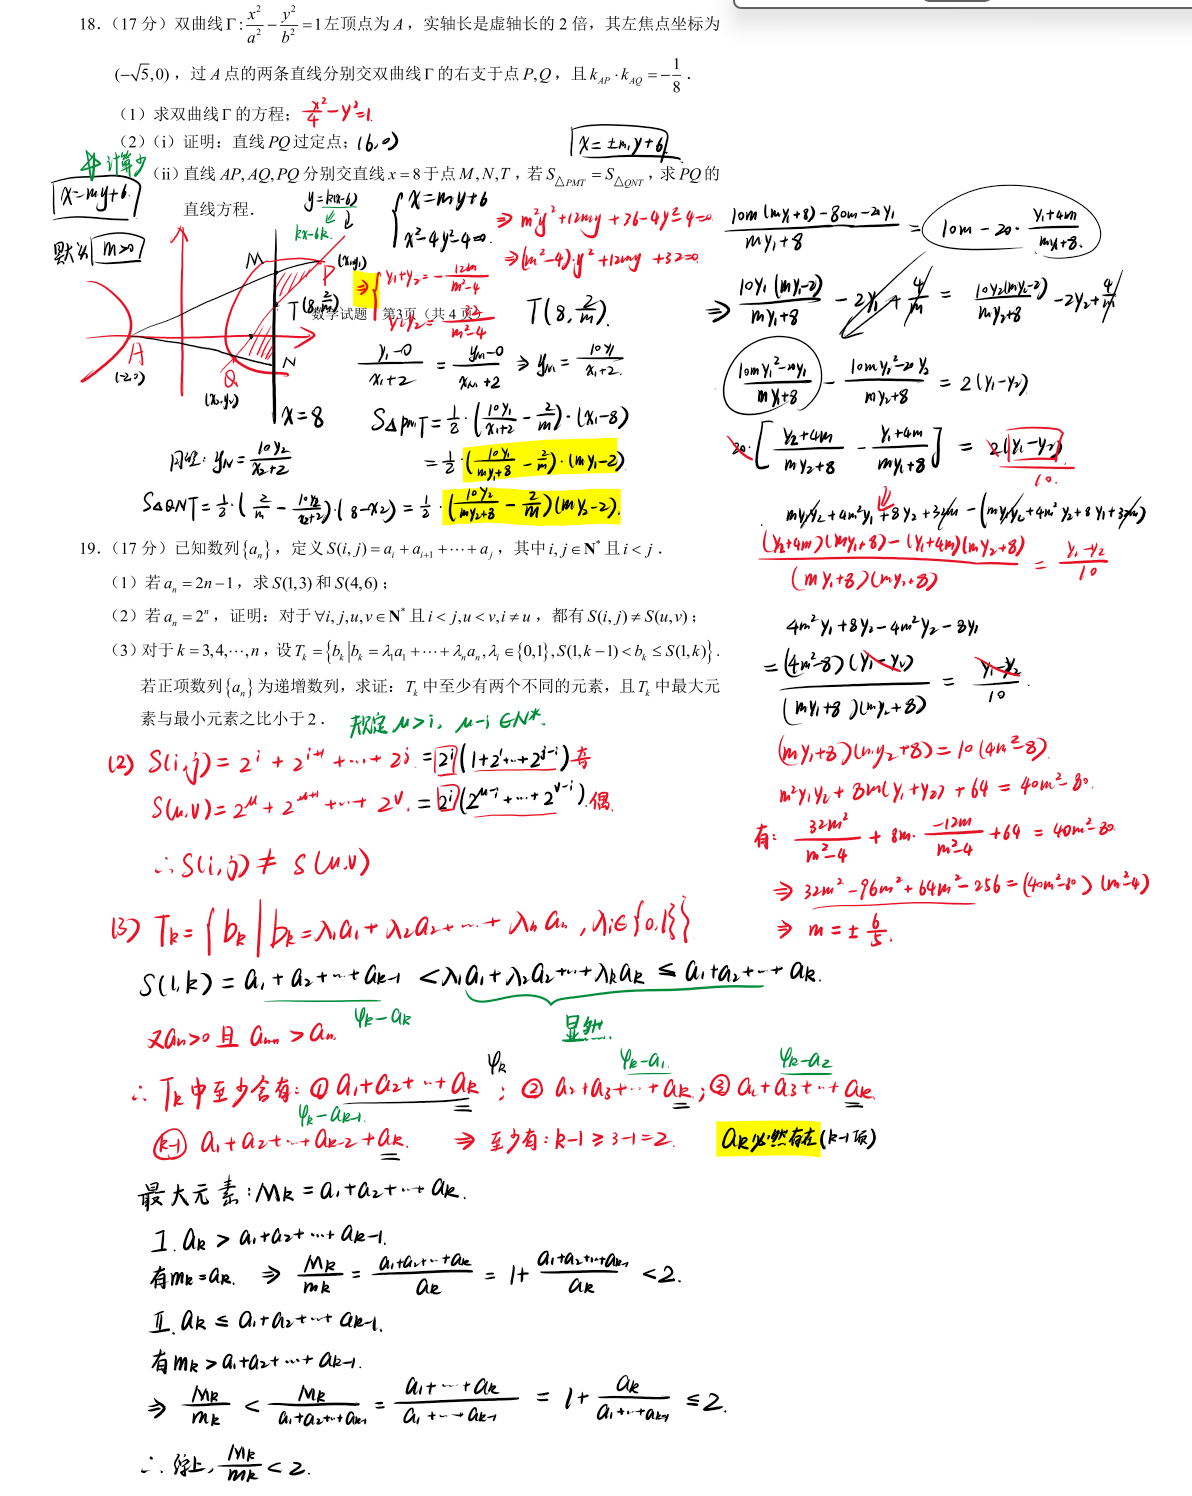 18.（17 分）双曲线Γ: x²/a² − y²/b² =1左顶点为 A，实轴长是虚轴长的 2 倍，其左焦点坐标为
(−√5,0)，过 A 点的两条直线分别交双曲线Γ的右支于点 P,Q，且 k_AP · k_AQ = −1/8．
（1）求双曲线Γ的方程； x²/4 − y² = 1.
（2）（i）证明：直线 PQ 过定点； (6,0)
x = ±m₁y+6
计算少
（ii）直线 AP, AQ, PQ 分别交直线 x = 8 于点 M, N, T，若 S△PMT = S△QNT，求 PQ 的
直线方程．
x=my+6
默认 m>0
y=k(x-6)
kx-6k.
M
P (x₁,y₁)
T (8, 2/m)
N
A
(-2,0)
Q
(x₂,y₂)
x=8
数学试题 第3页（共 4 页）
{ x=my+6
x²-4y²-4=0.
⇒ m²y²+12my+36-4y²-4=0.
⇒ (m²-4)·y²+12my+32=0.
⇒ { y₁+y₂ = - 12m/(m²-4)
y₁y₂ = 32/(m²-4)
T(8, 2/m).
(y₁-0)/(x₁+2) = (y_M-0)/(x_M+2) ⇒ y_M = 10y₁/(x₁+2).
S△PMT = 1/2·(10y₁/(x₁+2) - 2/m)·(x₁-8)
= 1/2·(10y₁/(my₁+8) - 2/m)·(my₁-2)
同理: y_N = 10y₂/(x₂+2)
S△QNT = 1/2·(2/m - 10y₂/(x₂+2))·(8-x₂) = 1/2·(10y₂/(my₂+8) - 2/m)(my₂-2).
(10m(my₁+8)-80m-20y₁)/(my₁+8) = 10m-20·(y₁+4m)/(my₁+8).
⇒ 10y₁(my₁-2)/(my₁+8) - 2y₁ + 4/m = 10y₂(my₂-2)/(my₂+8) - 2y₂ + 4/m
(10my₁²-20y₁)/(my₁+8) - (10my₂²-20y₂)/(my₂+8) = 2(y₁-y₂)
20·[(y₂+4m)/(my₂+8) - (y₁+4m)/(my₁+8)] = 2(y₁-y₂)
10.
my₁y₂+4m²y₁+8y₂+32m-(my₁y₂+4m²y₂+8y₁+32m)
((y₂+4m)(my₁+8)-(y₁+4m)(my₂+8))/((my₁+8)(my₂+8)) = (y₁-y₂)/10
4m²y₁+8y₂-4m²y₂-8y₁
= (4m²-8)(y₁-y₂)/((my₁+8)(my₂+8)) = (y₁-y₂)/10.
(my₁+8)(my₂+8)=10(4m²-8).
m²y₁y₂+8m(y₁+y₂)+64=40m²-80.
有: 32m²/(m²-4) + 8m·(-12m)/(m²-4) + 64 = 40m²-80.
⇒ 32m²-96m²+64m²-256=(40m²-80)(m²-4)
⇒ m=± 6/5.
19.（17 分）已知数列{aₙ}，定义 S(i,j) = aᵢ + aᵢ₊₁ + ⋯ + aⱼ，其中 i, j∈N* 且 i < j．
（1）若 aₙ = 2n−1，求 S(1,3) 和 S(4,6)；
（2）若 aₙ = 2ⁿ，证明：对于∀i, j,u,v∈N* 且 i < j,u < v,i ≠ u，都有 S(i, j) ≠ S(u,v)；
（3）对于 k = 3,4,⋯,n，设 Tₖ = {bₖ | bₖ = λ₁a₁ + ⋯ + λₙaₙ, λᵢ ∈{0,1}, S(1,k−1) < bₖ ≤ S(1,k)}．
若正项数列{aₙ}为递增数列，求证：Tₖ 中至少有两个不同的元素，且 Tₖ 中最大元
素与最小元素之比小于 2．
规定 u>i, u-i∈N*.
(2) S(i,j) = 2ⁱ+2ⁱ⁺¹+⋯+2ʲ = 2ⁱ(1+2¹+⋯+2ʲ⁻ⁱ) 奇
S(u,v) = 2ᵘ+2ᵘ⁺¹+⋯+2ᵛ = 2ⁱ(2ᵘ⁻ⁱ+⋯+2ᵛ⁻ⁱ) 偶.
∴ S(i,j) ≠ S(u,v)
(3) Tₖ = {bₖ | bₖ=λ₁a₁+λ₂a₂+⋯+λₙaₙ, λᵢ∈{0,1}}
S(1,k) = a₁+a₂+⋯+aₖ₋₁ < λ₁a₁+λ₂a₂+⋯+λₖaₖ ≤ a₁+a₂+⋯+aₖ.
φₖ-aₖ
显然.
又aₙ>0 且 aₙ₊₁>aₙ.
φₖ
φₖ-a₁
φₖ-a₂
∴ Tₖ中至少含有: ① a₁+a₂+⋯+aₖ ; ② a₂+a₃+⋯+aₖ ; ③ a₁+a₃+⋯+aₖ.
φₖ-aₖ₋₁.
(k-1) a₁+a₂+⋯+aₖ₋₂+aₖ. ⇒ 至少有: k-1≥3-1=2. aₖ必然存在 (k-1项)
最大元素: Mₖ=a₁+a₂+⋯+aₖ.
I. aₖ > a₁+a₂+⋯+aₖ₋₁.
有mₖ=aₖ. ⇒ Mₖ/mₖ = (a₁+a₂+⋯+aₖ)/aₖ = 1+(a₁+a₂+⋯+aₖ₋₁)/aₖ < 2.
II. aₖ ≤ a₁+a₂+⋯+aₖ₋₁.
有mₖ>a₁+a₂+⋯+aₖ₋₁.
⇒ Mₖ/mₖ < Mₖ/(a₁+a₂+⋯+aₖ₋₁) = (a₁+⋯+aₖ)/(a₁+⋯+aₖ₋₁) = 1+aₖ/(a₁+⋯+aₖ₋₁) ≤ 2.
∴ 综上, Mₖ/mₖ < 2.